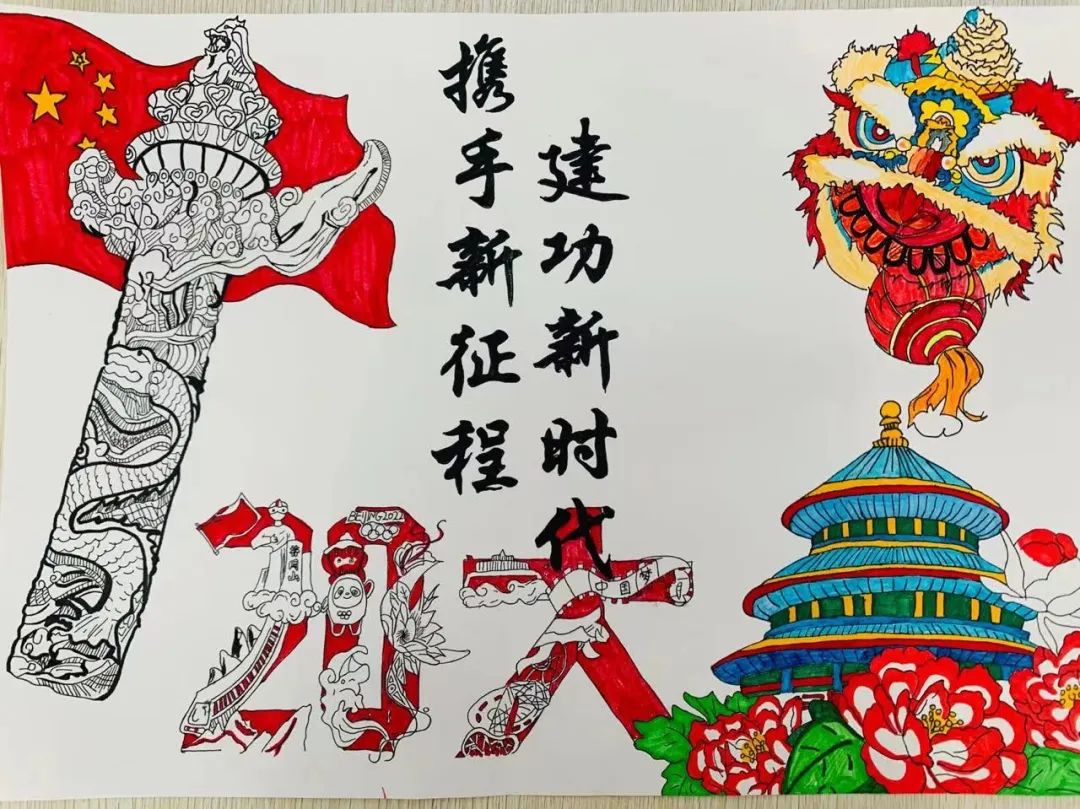 携手新征程
建功新时代
20大
BEIJING2022
中国梦